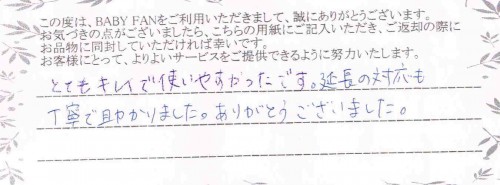 この度は、BABY FANをご利用いただきまして、誠にありがとうございます。
お気づきの点がございましたら、こちらの用紙にご記入いただき、ご返却の際に
お品物に同封していただければ幸いです。
お客様にとって、よりよいサービスをご提供できるように努力いたします。
とてもキレイで使いやすかったです。延長の対応も
丁寧で助かりました。ありがとうございました。